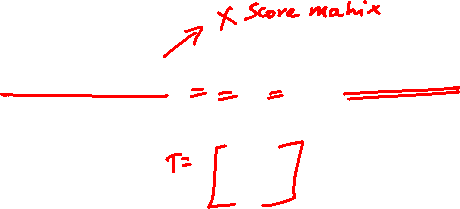 X Score matrix
= = =
T = [ ]